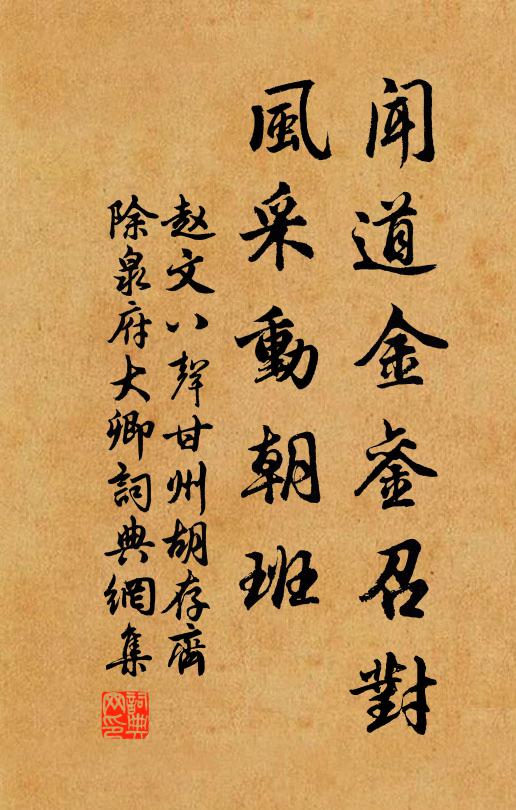 聞道金銮召對
風采動朝班
赵文八聲甘州胡存齊
除泉府大卿詞典網集
詞典
网印